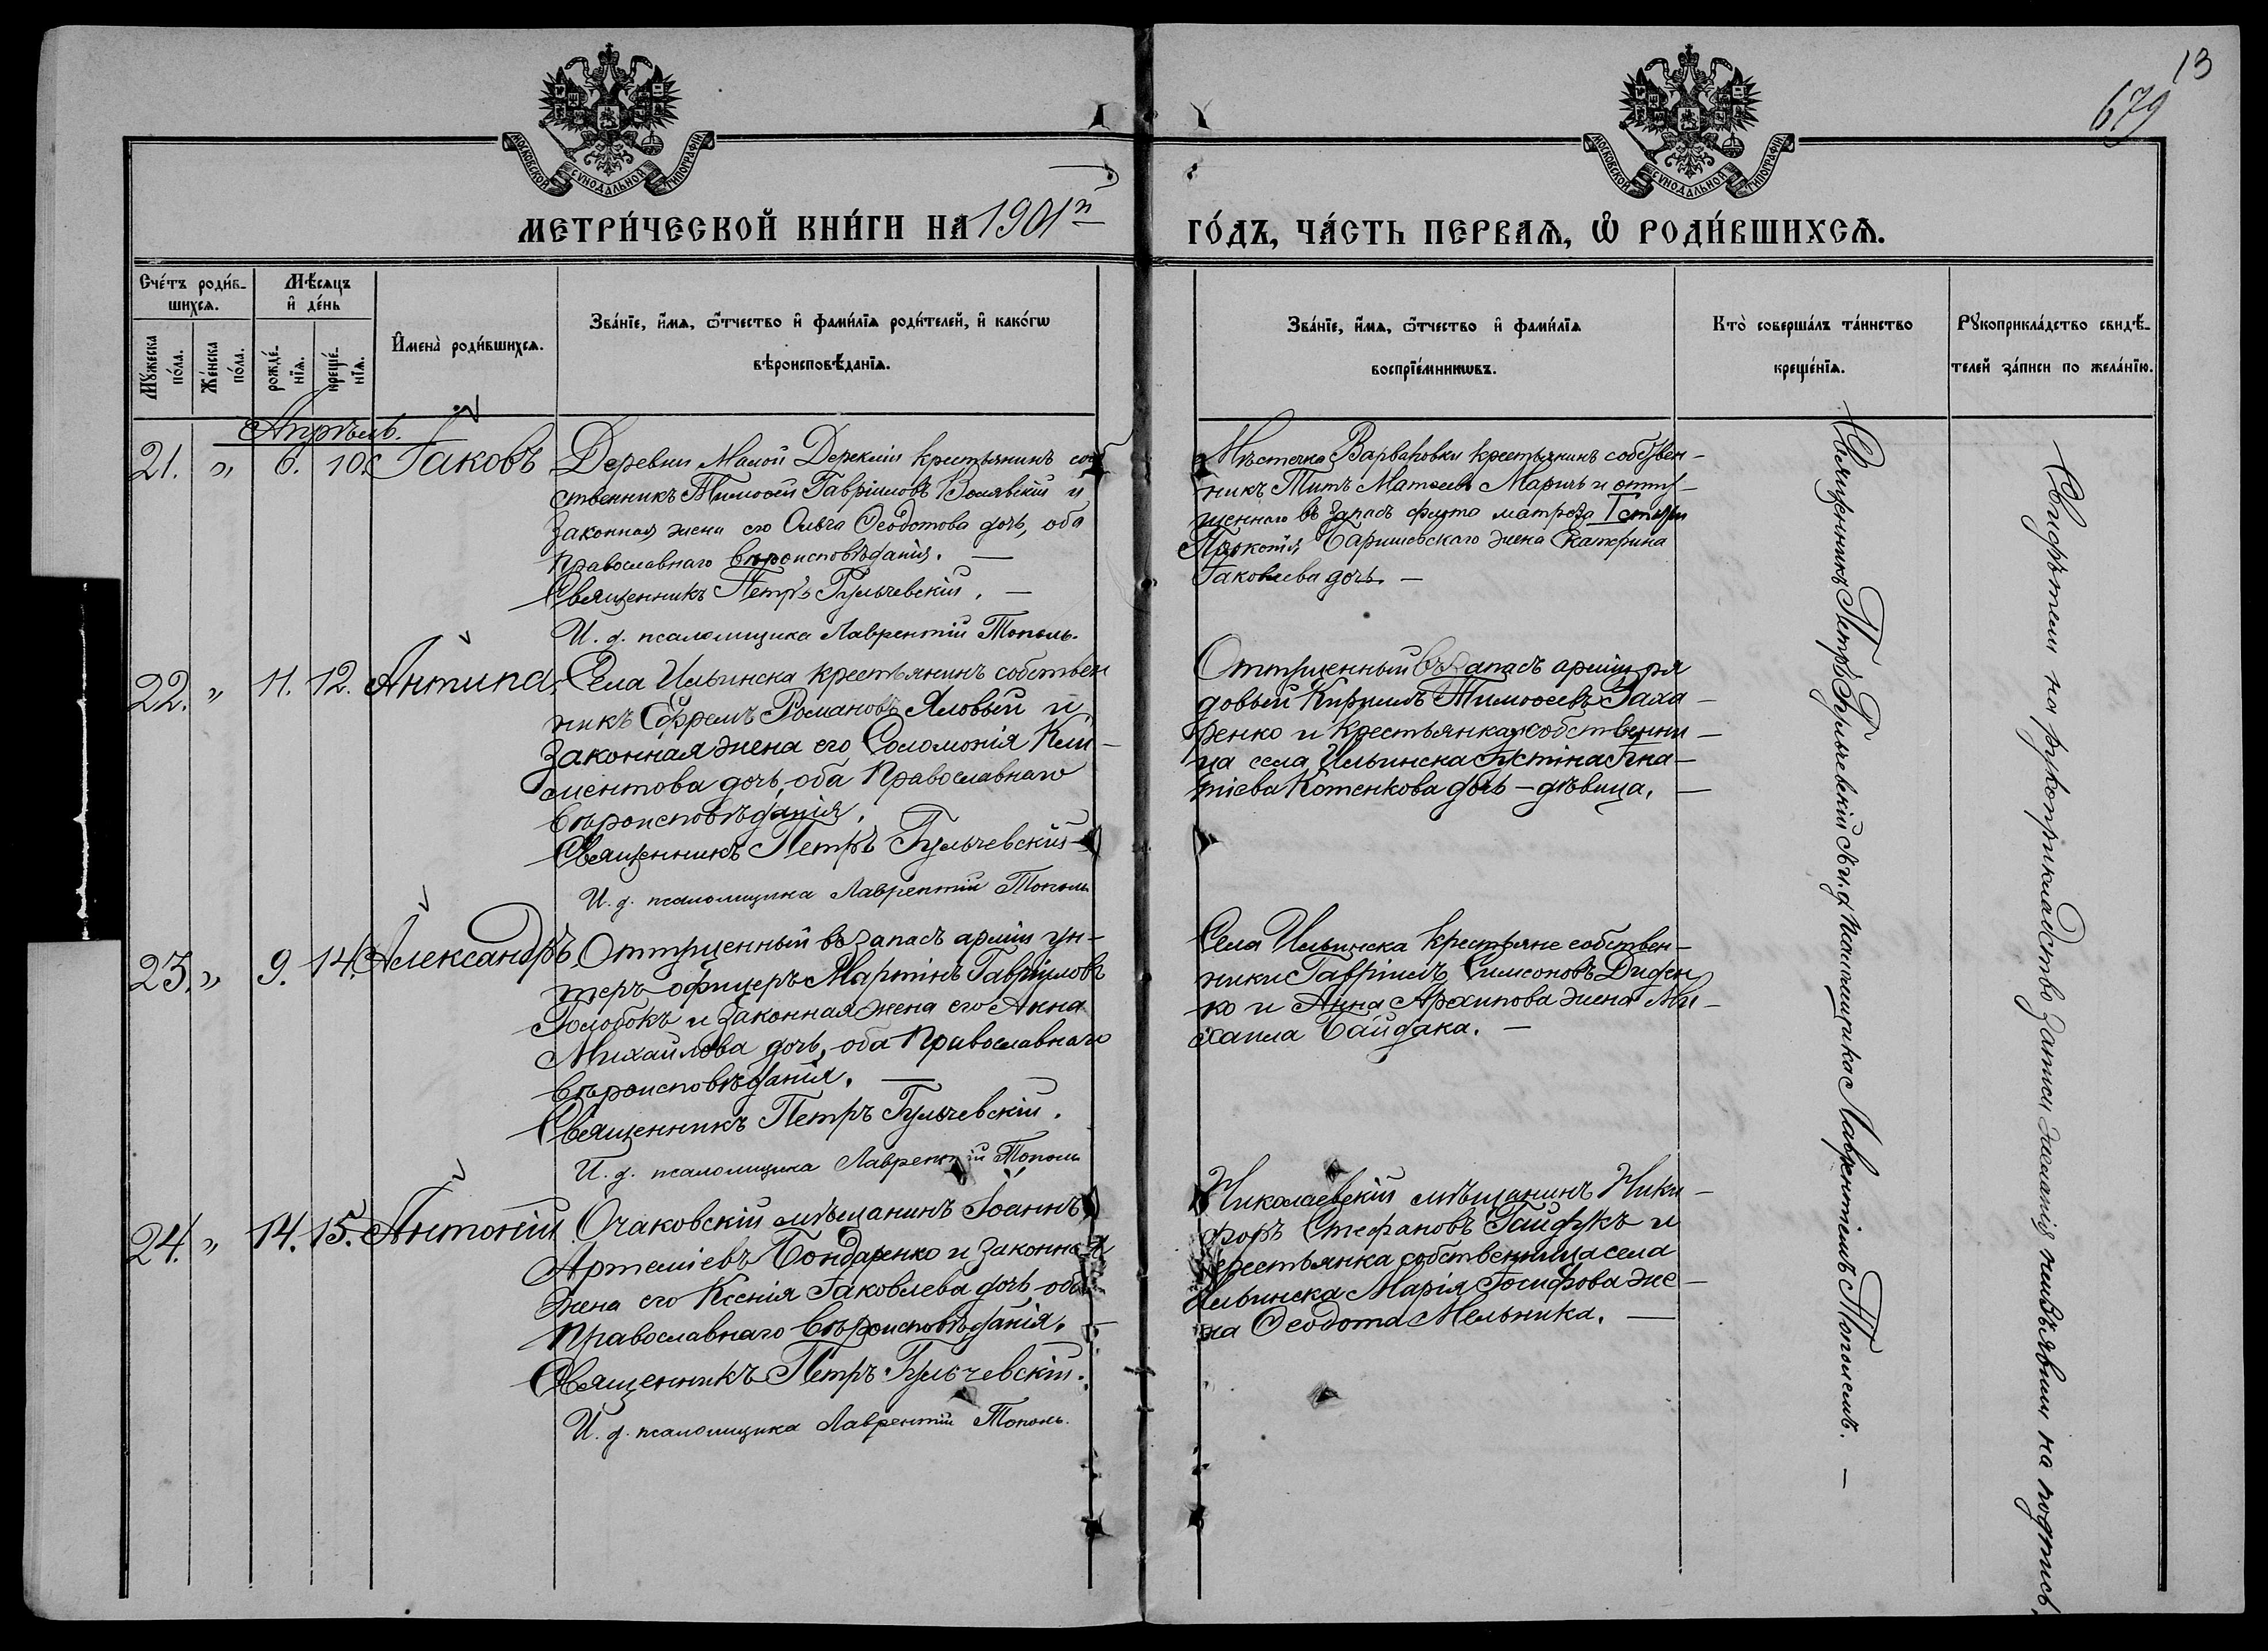 13
679
МОСКОВСКОЙ СУНОДАЛЬНОЙ ТИПОГРАФІИ
МОСКОВСКОЙ СУНОДАЛЬНОЙ ТИПОГРАФІИ
МЕТРИ́ЧЕСКОЙ КНИ́ГИ НА 1901й
ГО́ДЪ, ЧА́СТЬ ПЕРВАѦ, Ѡ҆ РОДИ́ВШИХСѦ.
Сче́тъ роди́в-
шихсѧ.
Мꙋ́жеска
по́ла.
Же́нска
по́ла.
Мѣ́сѧцъ
и҆ де́нь
рожде́-
нїѧ.
креще́-
нїѧ.
И҆мена̀ роди́вшихсѧ.
Зва́нїе, и҆́мѧ, ѻ҆́тчество и҆ фами́лїѧ роди́телей, и҆ како́гѡ
вѣроисповѣ́данїѧ.
Зва́нїе, и҆́мѧ, ѻ҆́тчество и҆ фами́лїѧ
воспрїе́мникѡвъ.
Кто̀ соверша́лъ та́инство
креще́нїѧ.
Рꙋкоприкла́дство свидѣ́-
телей за́писи по жела́нїю.
Апрѣль.
21. " 6. 10. Іаковъ
Деревни Малой Дерекліи крестьянинъ соб
ственникъ Тимоѳей Гавріиловъ и
законная жена его Ольга Ѳеодотова дочь, оба
Православнаго вѣроисповѣданія. —
Священникъ Петръ Гульчевскій. —
И. д. псаломщика Лаврентій Тополь.
Мѣстечка Варваровки крестьянинъ собствен-
никъ Титъ Матѳеевъ и отпу-
щеннаго въ запасъ флота матроза I статьи
Баришевскаго жена Екатерина
Іаковлева дочь. —
22. " 11. 12. Антипа.
Села Ильинска крестьянинъ собствен
никъ Ефремъ Романовъ Яловый и
законная жена его Соломонія Кли-
ментова дочь, оба Православнаго
вѣроисповѣданія.
Священникъ Петръ Гульчевскій
И. д. псаломщика Лаврентій Тополь
Отпущенный въ запасъ арміи ря
довый Кириллъ Тимоѳеевъ Заха-
ренко и крестьянка собственни-
ца села Ильинска Устинія Игна-
тіева Котенкова дочь – дѣвица. —
23. " 9. 14. Александръ.
Отпущенный въ запасъ арміи ун-
теръ офицеръ Мартинъ Гавріиловъ
Голобокъ и законная жена его Анна
Михайлова дочь, оба Православнаго
вѣроисповѣданія. —
Священникъ Петръ Гульчевскій.
И. д. псаломщика Лаврентій Тополь
Села Ильинска крестьяне собствен-
ники Гавріилъ Симеоновъ Диден
ко и Анна Архипова жена Ми-
хаила Байдака. —
24. " 14. 15. Антоній
Очаковскій мѣщанинъ Іоаннъ
Артеміевъ Бондаренко и законная
жена его Ксенія Іаковлева дочь, оба
Православнаго вѣроисповѣданія. —
Священникъ Петръ Гульчевскій.
И. д. псаломщика Лаврентій Тополь.
Николаевскій мѣщанинъ Ники-
форъ Стефановъ Гайдукъ и
крестьянка собственница села
Ильинска Марія Іосифова же-
на Ѳеодота Мельника. —
Священникъ Петръ Гульчевскій съ и. д. псаломщика Лаврентіемъ Тополемъ. —
Свидѣтели на рукоприкладство записи желанія неизъявили на подпись.